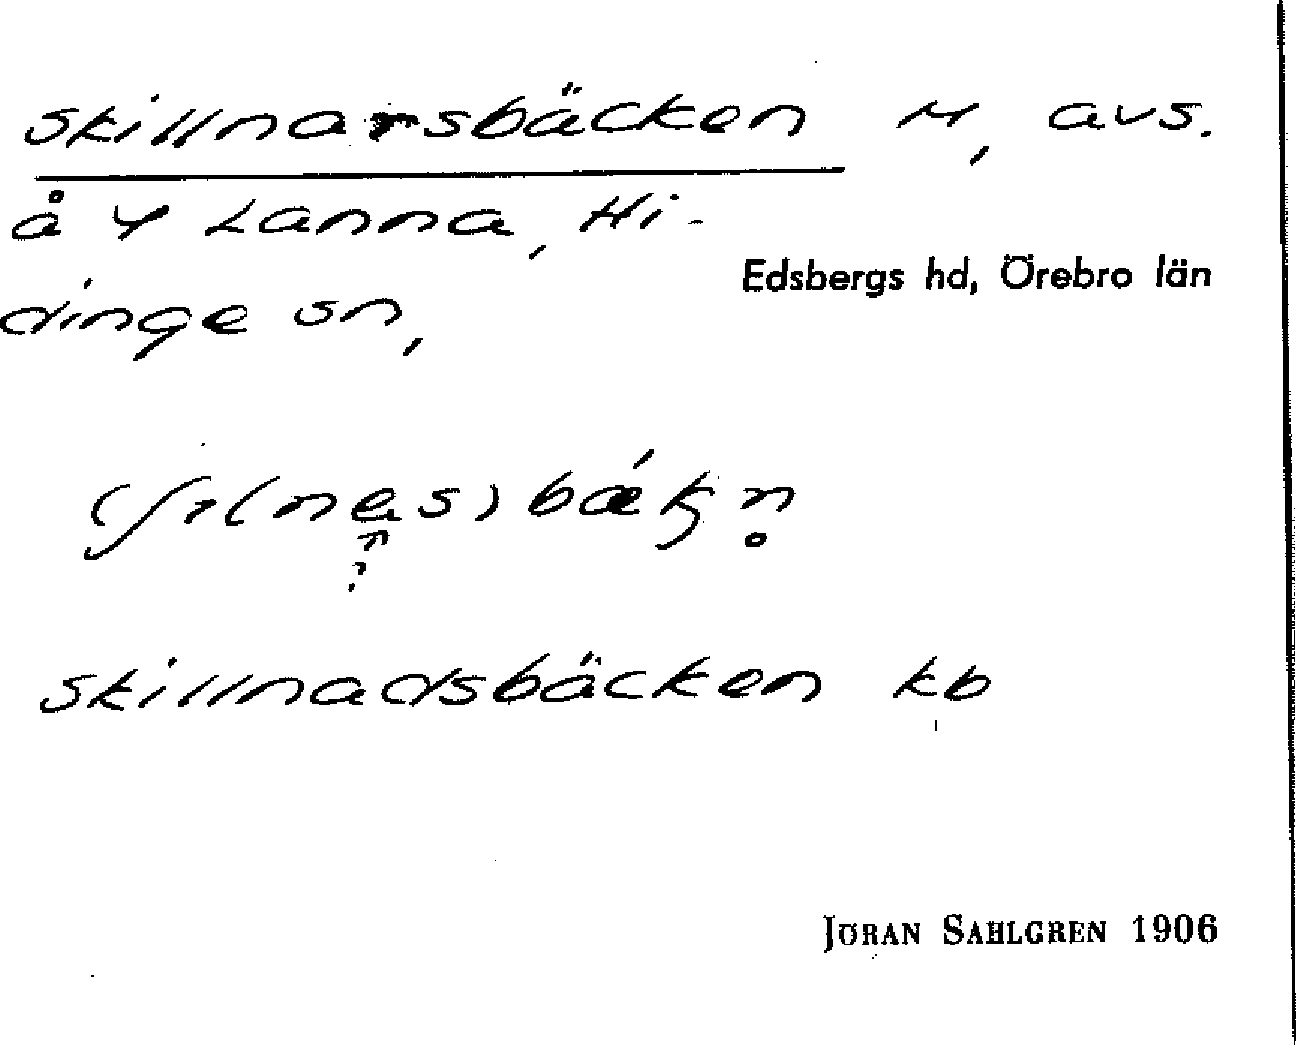 Skillnarsbäcken M, avs.
å Y Lanna, Hi-
Edsbergs hd, Örebro län
dinge sn,
skillnadsbäcken kb
JÖRAN SAHLGREN 1906